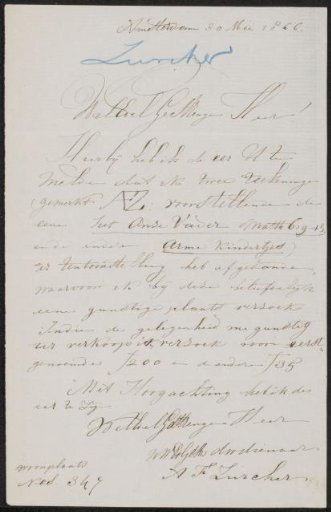 Amsterdam 30 Mei 1866.
Zurcher
WelEdel Gestrenge Heer!
Hierbij heb ik de eer U te
melden dat ik twee teekeninge
(gemerkt Z) voorstellende de
eene het Onze Vader Math 6: 9-13
ende andere Arme Kindertjes,
ter tentoonstelling heb afgezonden,
waarvoor ik bij deze
een gunstige plaats verzoek
Indien de gelegenheid me gunstig
ter verkoop is verzoek voor eerst-
genoemde ƒ200 en de andere ƒ35
Met Hoogachting heb ik de
eer te zijn
WelEdel Gestrenge Heer
UWEdGeb dw dienaar
A F Zurcher
woonplaats
No d. 347